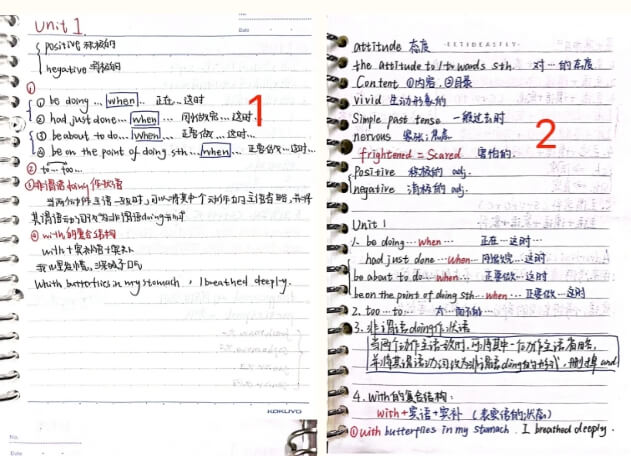 Unit 1.
positive 积极的
negative 消极的
①
① be doing ... when ... 正在...这时
② had just done ... when ... 刚做完...这时
③ be about to do ... when ... 正要做...这时...
④ be on the point of doing sth ... when ... 正要做...这时...
② to... too...
③ 非谓语doing作状语
当两个动作主语一致时，可以将其中一个动作的主语省略，并将
其谓语动词改为非谓语doing形式
④ with的复合结构
with+宾补语+宾补
With butterflies in my stomach, I breathed deeply.
KOKUYO
No.
Date
1
attitude 态度
the attitude to/towards sth. 对...的态度
Content ①内容，②目录
vivid 生动形象的
Simple past tense 一般过去时
nervous 紧张；焦虑
frightened = Scared 害怕的.
Positive 积极的 adj.
negative 消极的 adj.
2
Unit 1
1. be doing ... when ... 正在...这时
had just done ... when ... 刚做完...这时
be about to do ... when ... 正要做...这时
be on the point of doing sth ... when ... 正要做...这时
2. too ... to ... 太...而不能...
3. 非谓语doing作状语
当两个动作主语一致时，可将其中一个动作主语省略，
并将其谓语动词改为非谓语doing的形式，删掉and
4. with的复合结构：
with+宾语+宾补（表宾语的状态）
① with butterflies in my stomach. I breathed deeply.